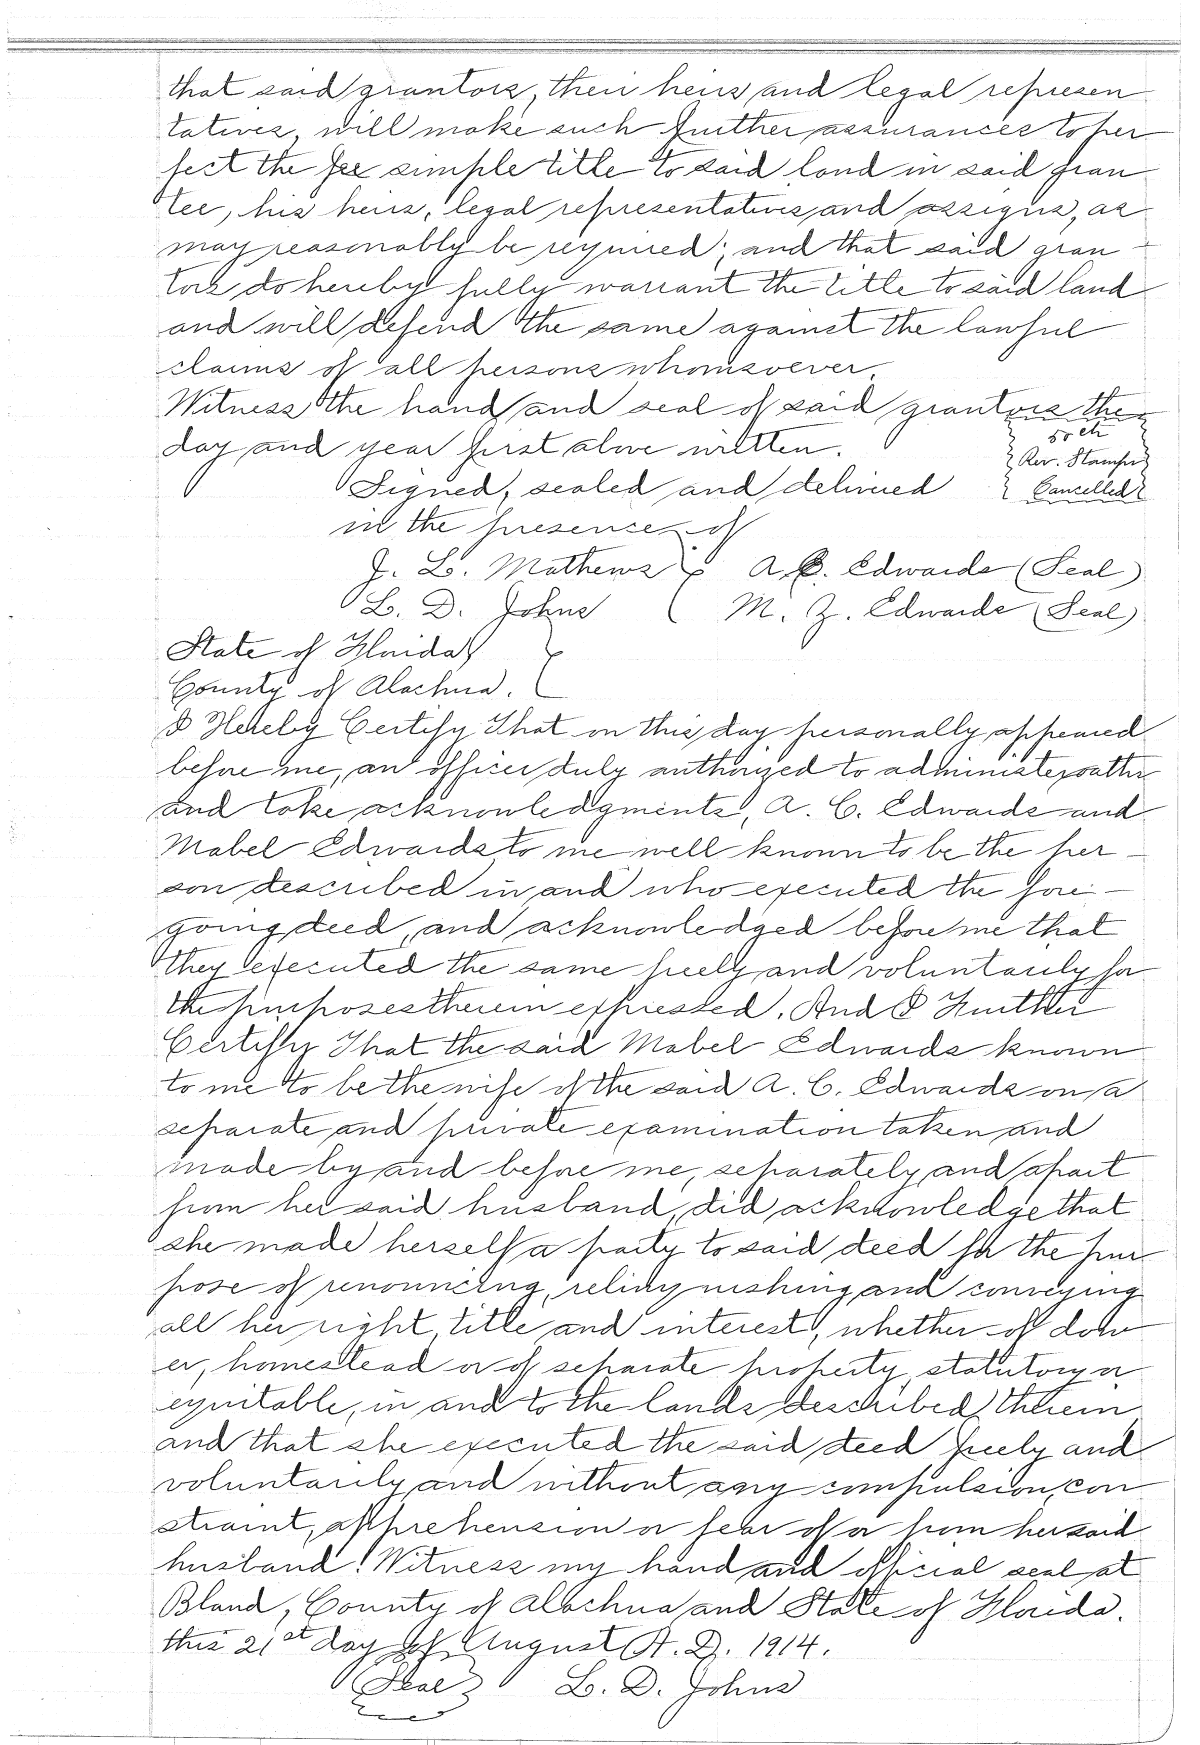 that said grantors, their heirs and legal represen
tatives, will make such further assurances to per
fect the fee simple title to said land in said gran
tee, his heirs, legal representatives and assigns, as
may reasonably be required; and that said gran -
tors do hereby fully warrant the title to said land
and will defend the same against the lawful
claims of all persons whomsoever.
Witness the hand and seal of said grantors the
day and year first above written.
50 cts
Rev. Stamps
Cancelled
Signed, sealed and delivered
in the presence of
J. L. Mathews A. C. Edwards (Seal)
L. D. Johns M. Z. Edwards (Seal)
State of Florida
County of Alachua.
I Hereby Certify That on this day personally appeared
before me, an officer duly authorized to administer oaths
and take acknowledgments, A. C. Edwards and
Mabel Edwards to me well known to be the per -
son described in and who executed the fore -
going deed, and acknowledged before me that
they executed the same freely and voluntarily for
the purposes therein expressed. And I Further
Certify That the said Mabel Edwards known
to me to be the wife of the said A. C. Edwards on a
separate and private examination taken and
made by and before me, separately and apart
from her said husband, did acknowledge that
she made herself a party to said deed for the pur
pose of renouncing, relinquishing and conveying
all her right, title and interest, whether of dow
er, homestead or of separate property, statutory or
equitable, in and to the lands described therein,
and that she executed the said deed freely and
voluntarily and without any compulsion, con
straint, apprehension or fear of or from her said
husband. Witness my hand and official seal at
Bland, County of Alachua and State of Florida.
this 21st day of August A. D. 1914.
(Seal) L. D. Johns